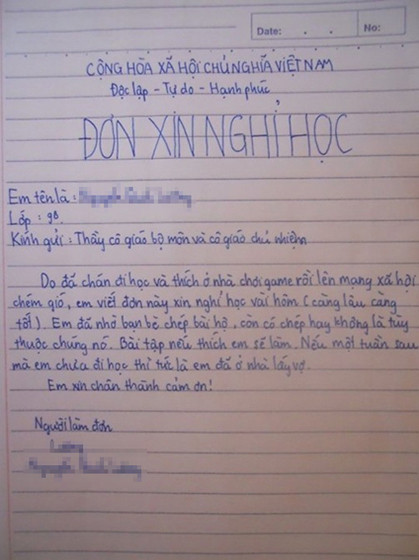 Date: . . No:
CỘNG HÒA XÃ HỘI CHỦ NGHĨA VIỆT NAM
Độc lập - Tự do - Hạnh phúc
ĐƠN XIN NGHỈ HỌC
Em tên là:
Lớp: 9B
Kính gửi: Thầy cô giáo bộ môn và cô giáo chủ nhiệm
Do đã chán đi học và thích ở nhà chơi game rồi lên mạng xã hội
chém gió, em viết đơn này xin nghỉ học vài hôm (càng lâu càng
tốt). Em đã nhờ bạn bè chép bài hộ, còn có chép hay không là tùy
thuộc chúng nó. Bài tập nếu thích em sẽ làm. Nếu một tuần sau
mà em chưa đi học thì tức là em đã ở nhà lấy vợ.
Em xin chân thành cảm ơn!
Người làm đơn